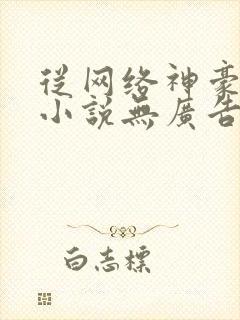 從网络神豪
小説無廣告
白志標